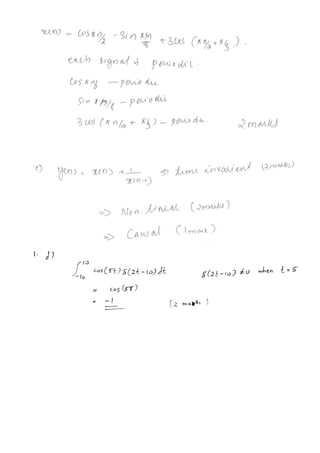 x(n) = cos πn/2 - Sin πn/8 + 3 cos (πn/4 + π/3).
each signal is periodic.
cos πn/2 — periodic
Sin πn/8 - periodic
3 cos (πn/4 + π/3) - periodic 2 marks
e) y(n) = x(n) + 1/x(n-1) ⇒ time invarient (2 marks)
⇒ Non linear (2 marks)
⇒ Causal (1 mark).
1. f)
∫_{-10}^{10} cos(πt) δ(2t-10) dt δ(2t-10) ≠ 0 when t = 5
= cos (5π)
= -1 (2 marks)